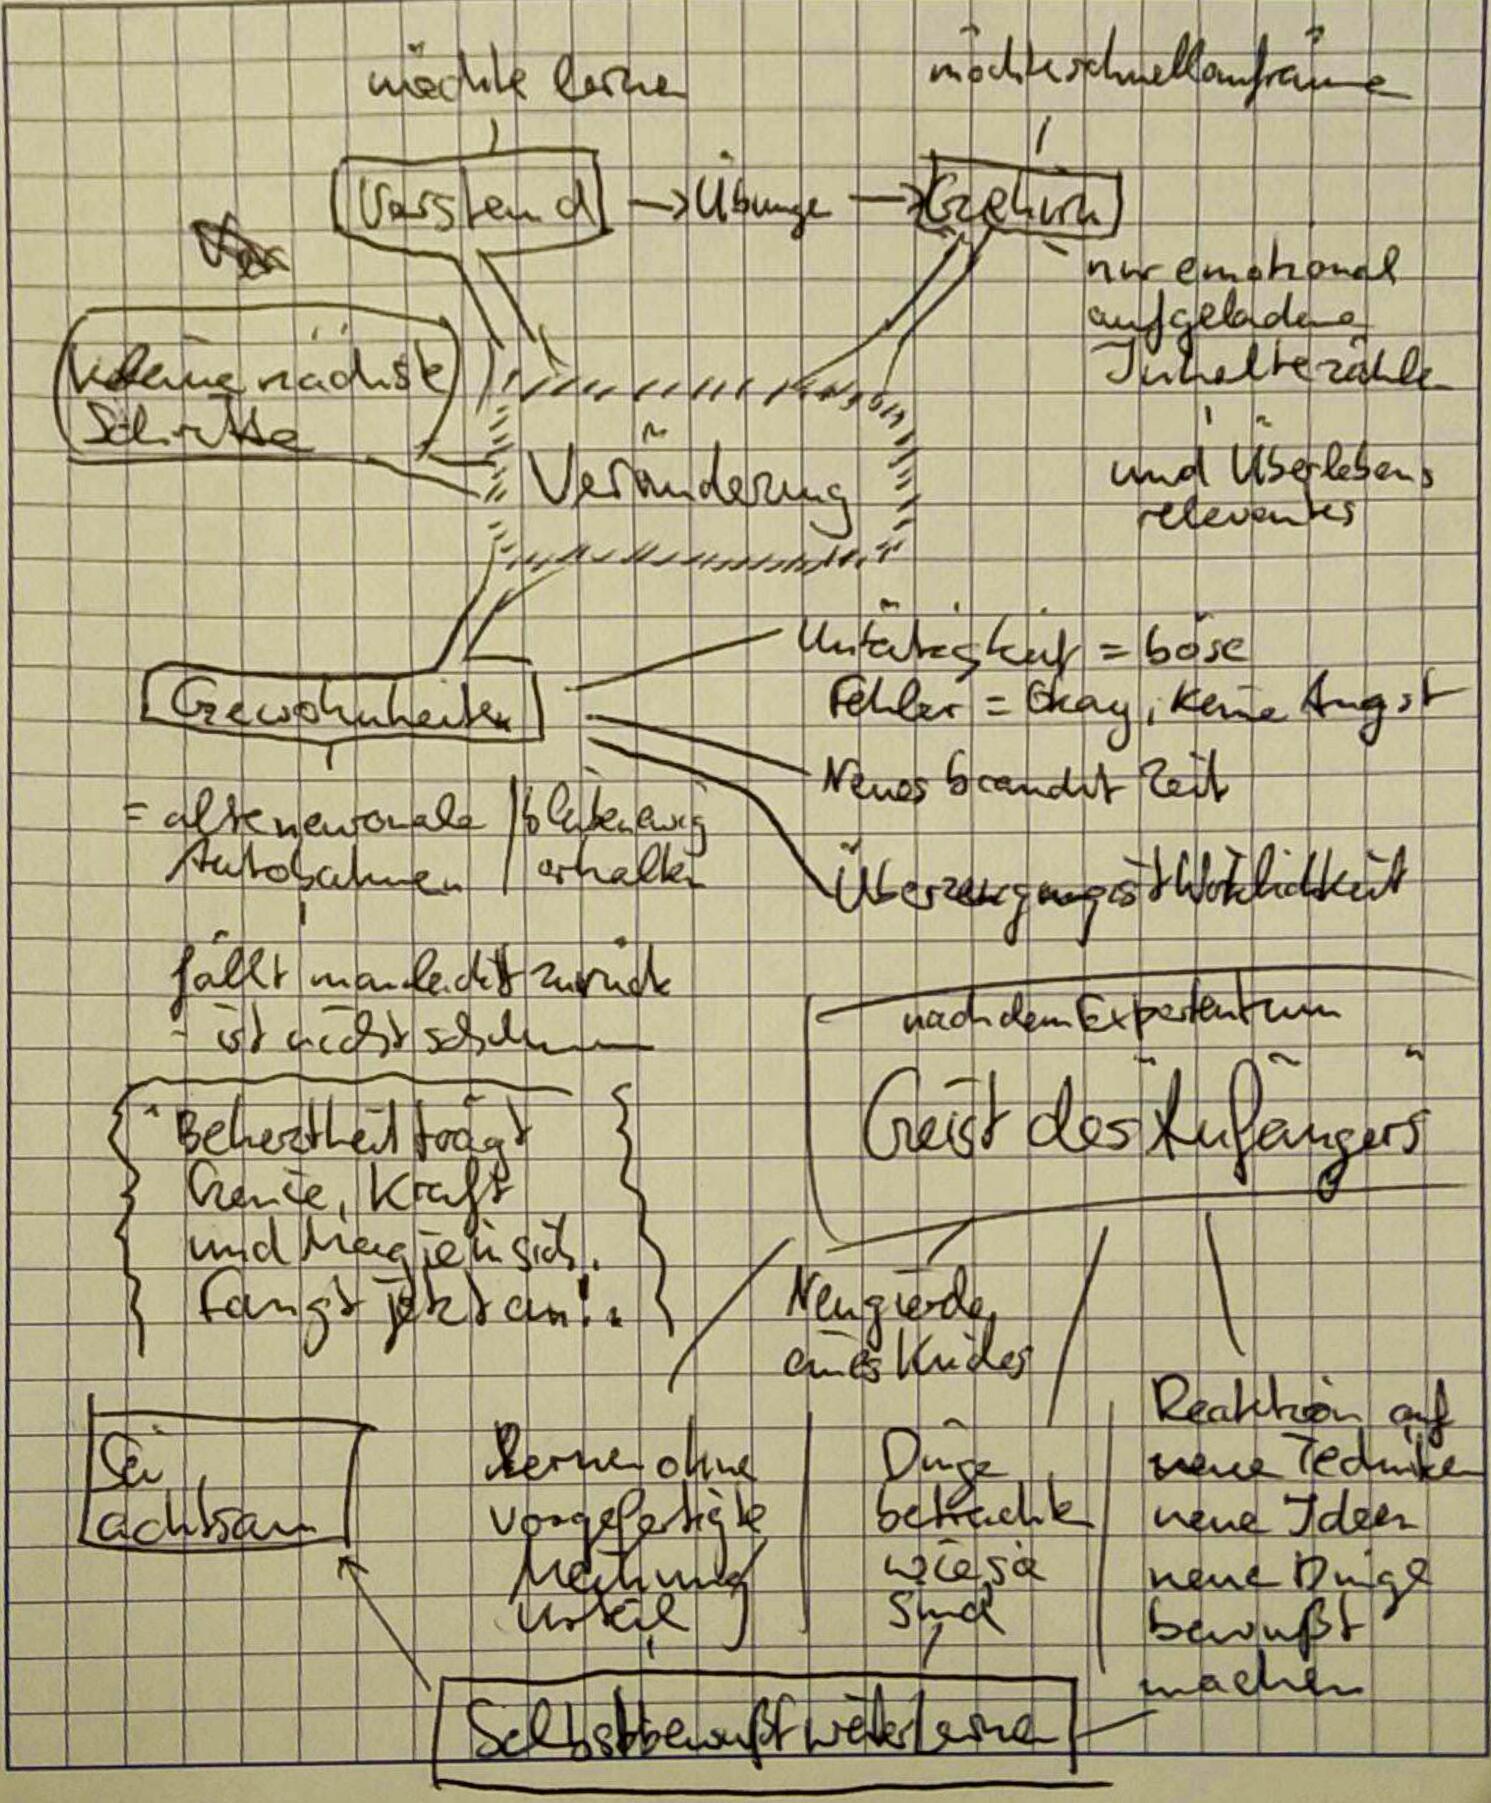 möchte lernen
möchte schnell aufräumen
Verstand → Übunge → Gehirn
nur emotional
aufgeladene
Inhalte zählen
und Überlebens
relevantes
kleine nächste
Schritte
Veränderung
Untätigkeit = böse
Fehler = Okay, keine Angst
Gewohnheiten
Neues braucht Zeit
= alte neuronale / bleiben ewig
Autobahnen / erhalten
Überzeugung ist Wirklichkeit
fällt man leicht zurück
- ist nicht schlimm
nach dem Expertentum
Geist des Anfängers
"Beherztheit trägt
Genie, Kraft
und Magie in sich.
Fangt jetzt an!"
Neugierde
eines Kindes
Sei
achtsam
Lernen ohne
vorgefertigte
Meinung/
Urteil
Dinge
betrachte
wie sie
sind
Reaktion auf
neue Techniken
neue Ideen
neue Dinge
bewußt
machen
Selbstbewußt weiterlernen